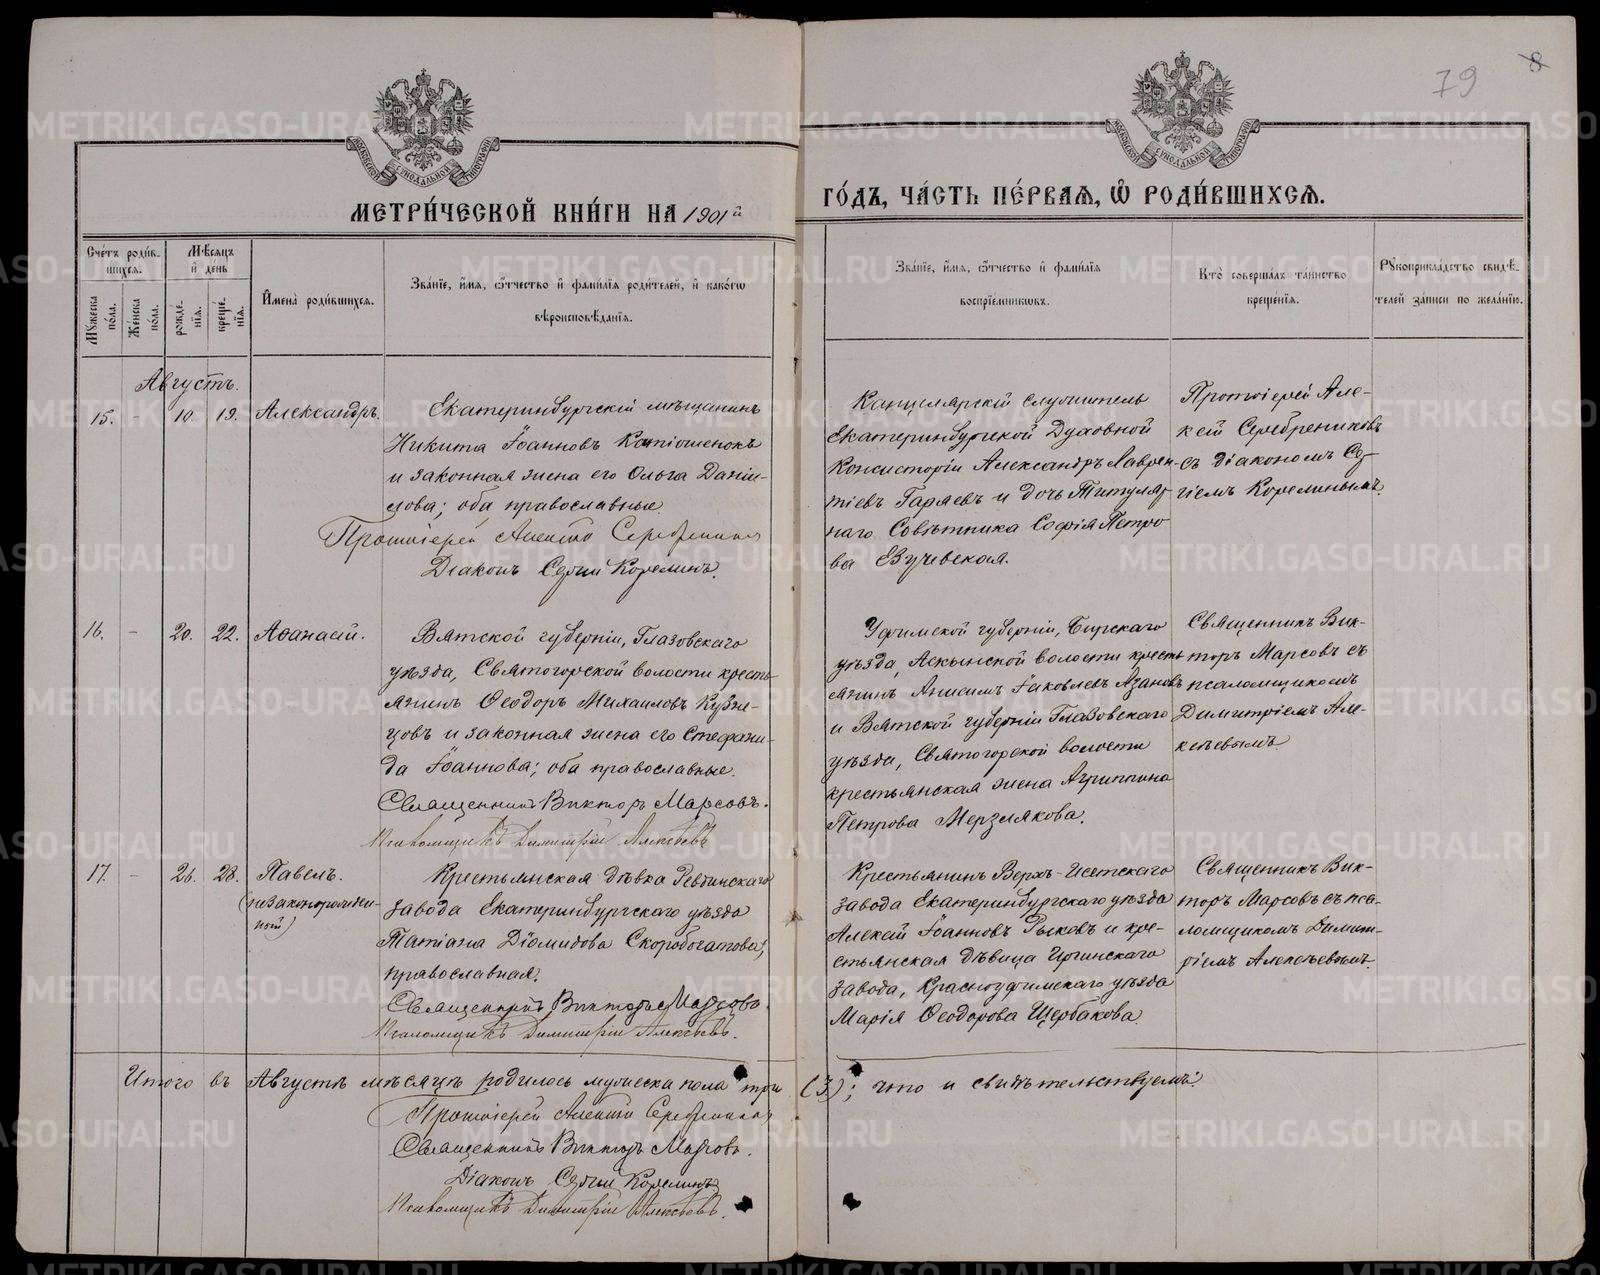 79
8
МОСКОВСКОЙ СѴНОДАЛЬНОЙ ТИПОГРАФІИ
МОСКОВСКОЙ СѴНОДАЛЬНОЙ ТИПОГРАФІИ
МЕТРИ́ЧЕСКОЙ КНИ́ГИ НА 1901й
ГО́ДЪ, ЧА́СТЬ ПЕ́РВАЯ, Ѡ РОДИ́ВШИХСЯ.
Сче́тъ роди́в-
шихся.
Му́жеска по́ла.
Же́нска по́ла.
Мѣ́сяцъ
и де́нь
рожде́-
нія.
креще́-
нія.
Имена̀ роди́вшихся.
Зва́ніе, и́мя, ѻ́тчество и фами́лія роди́телей, и како́гѡ
вѣроисповѣ́данія.
Зва́ніе, и́мя, ѻ́тчество и фами́лія
воспріе́мникѡвъ.
Кто̀ соверша́лъ та́инство
креще́нія.
Рукоприкла́дство свидѣ́-
телей за́писи по жела́нію.
Августъ.
15. - 10. 19. Александръ.
Екатеринбургскій мѣщанинъ
Никита Іоанновъ Катюшенокъ
и законная жена его Ольга Даніи-
лова; оба православные.
Протоіерей Алексій Серебренниковъ
Діаконъ Сергій Корелинъ.
Канцелярскій служитель
Екатеринбургской Духовной
Консисторіи Александръ Лаврен-
тіевъ Гаряевъ и дочь Титуляр-
наго Совѣтника Софія Петро
ва
Протоіерей Але-
ксій Серебрениковъ
съ діакономъ Сер-
гіемъ Корелинымъ.
16. - 20. 22. Аѳанасій.
Вятской губерніи, Глазовскаго
уѣзда, Святогорской волости кресть-
янинъ Ѳеодоръ Михаиловъ Кузне-
цовъ и законная жена его Стефани-
да Іоаннова; оба православные.
Священникъ Викторъ Марсовъ.
Псаломщикъ Димитрій Алексѣевъ
Уфимской губерніи, Бирскаго
уѣзда, Аскынской волости кресть
янинъ Анисимъ Іаковлевъ Азановъ
и Вятской губерніи Глазовскаго
уѣзда, Святогорской волости
крестьянская жена Агриппина
Петрова Мерзлякова.
Священникъ Вик-
торъ Марсовъ съ
псаломщикомъ
Димитріемъ Але-
ксѣевымъ
17. - 26. 28. Павелъ.
(незаконнорожден-
ной)
Крестьянская дѣвка Ревдинскаго
завода Екатеринбургскаго уѣзда
Татіана Діомидова Скоробогатова;
православная.
Священникъ Викторъ Марсовъ.
Псаломщикъ Димитрій Алексѣевъ.
Крестьянинъ Верхъ-Исетскаго
завода Екатеринбургскаго уѣзда
Алексій Іоанновъ Рыковъ и кре-
стьянская дѣвица Иргинскаго
завода, Красноуфимскаго уѣзда
Марія Ѳеодорова Щербакова.
Священникъ Вик-
торъ Марсовъ съ пса-
ломщикомъ Димит-
ріемъ Алексѣевымъ.
Итого въ Августѣ мѣсяцѣ родилось мужеска пола три (3); что и свидѣтельствуемъ:
Протоіерей Алексій Серебренниковъ
Священникъ Викторъ Марсовъ.
Діаконъ Сергій Корелинъ
Псаломщикъ Димитрій Алексѣевъ.
METRIKI.GASO-URAL.RU